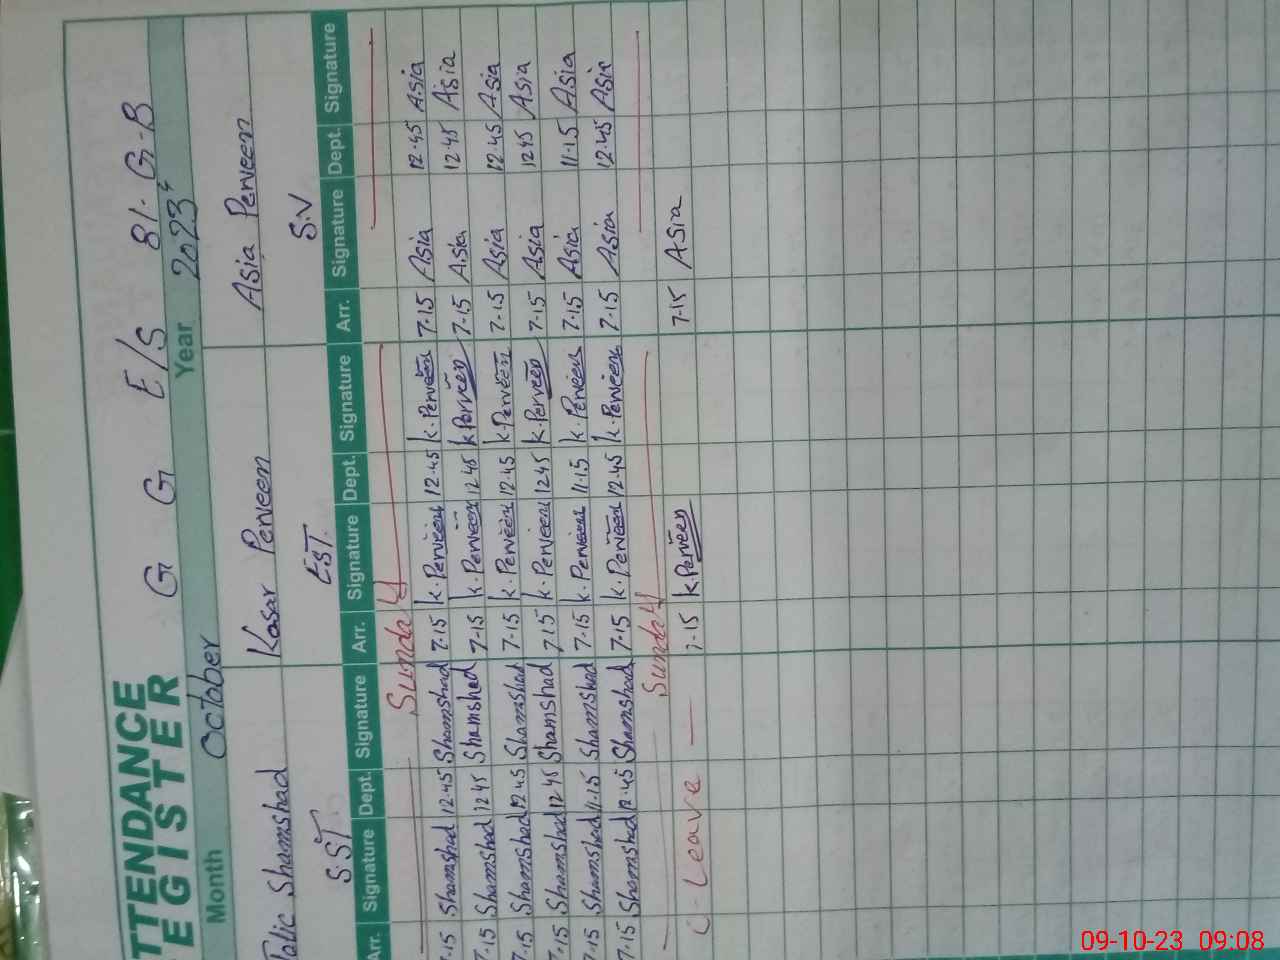 ATTENDANCE REGISTER
G G E/S 81. G-B
Month October Year 2023
Shamshad Kosar Perveen Asia Perveen
S.ST EST. S.V
Arr. Signature Dept. Signature Arr. Signature Dept. Signature Arr. Signature Dept. Signature
Sunday
7.15 Shamshad 12.45 Shamshad 7.15 K.Perveen 12.45 K.Perveen 7.15 Asia 12.45 Asia
7.15 Shamshad 12 45 Shamshad 7-15 K.Perveen 12 45 K Perveen 7-15 Asia 12.45 Asia
7.15 Shamshad 12 45 Shamshad 7-15 K.Perveen 12.45 K.Perveen 7-15 Asia 12.45 Asia
7.15 Shamshad 12 45 Shamshad 7 15 K.Perveen 12 45 K.Perveen 7.15 Asia 12 45 Asia
7.15 Shamshad 11.15 Shamshad 7.15 K.Perveen 11.15 K.Perveen 7.15 Asia 11.15 Asia
7.15 Shamshad 12.45 Shamshad 7.15 K.Perveen 12.45 K.Perveen 7.15 Asia 12.45 Asia
Sunday
C-Leave 7.15 K.Perveen 7.15 Asia
09-10-23 09:08